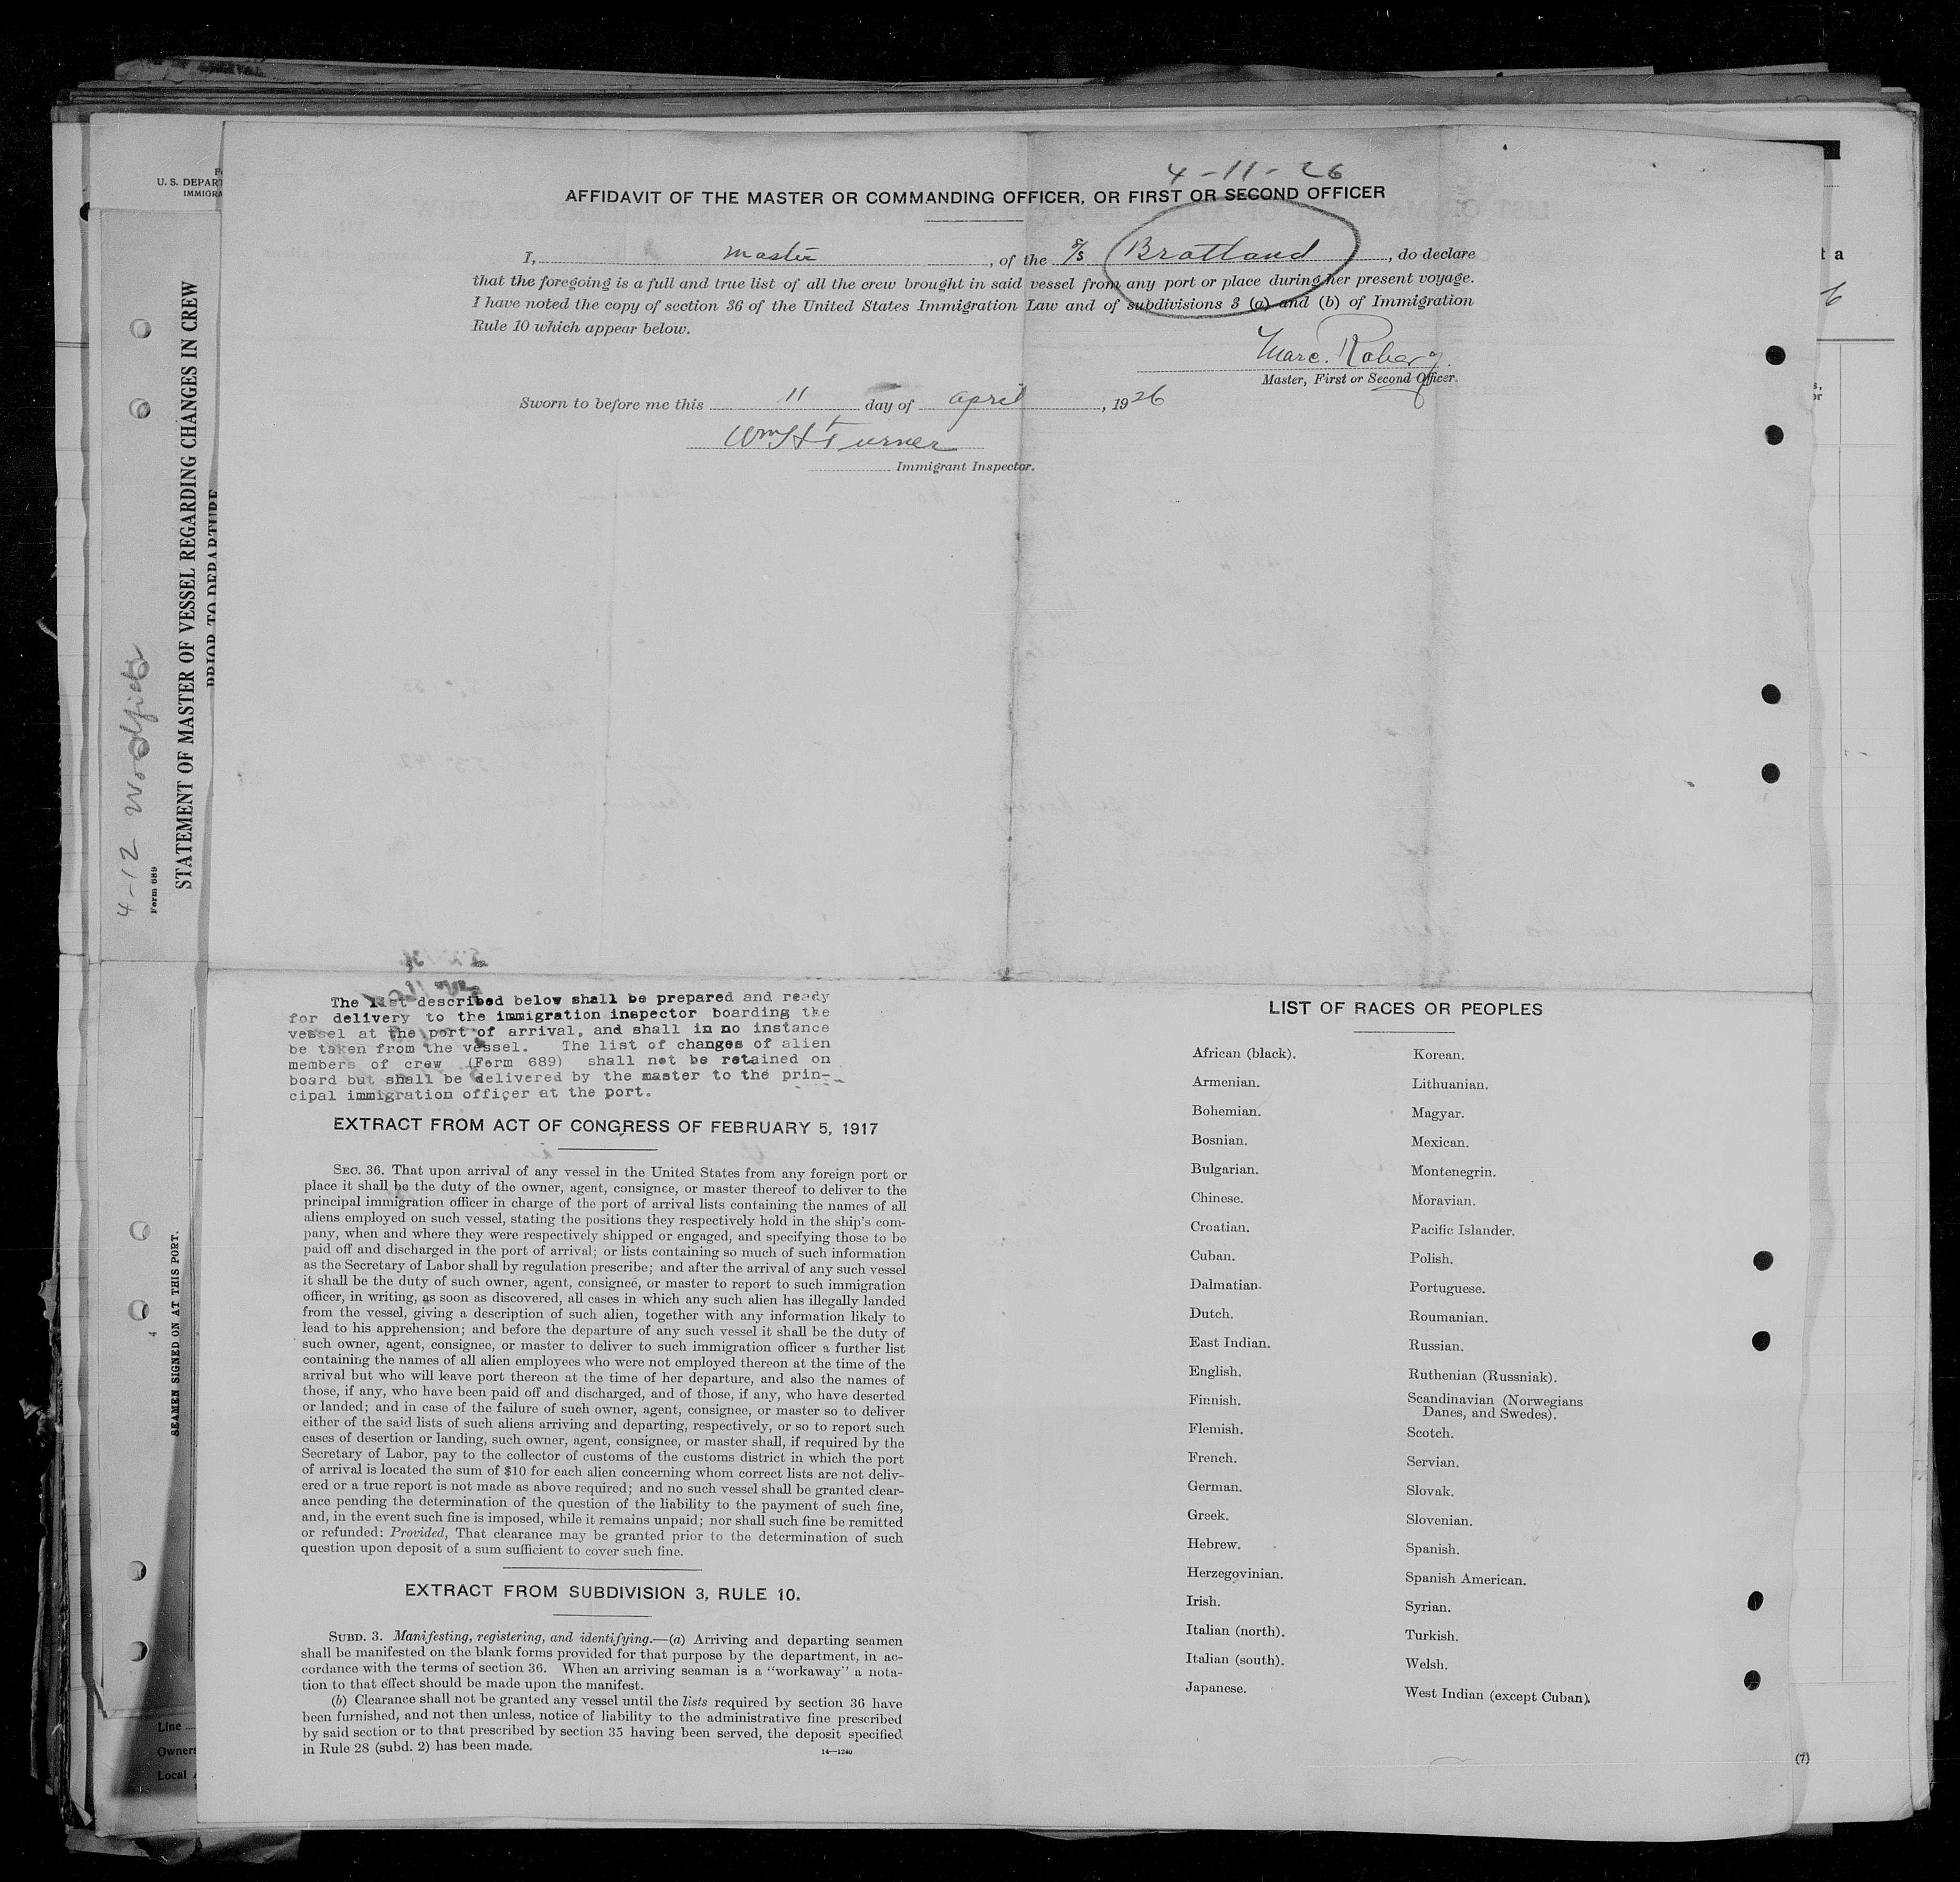 4-11-26
AFFIDAVIT OF THE MASTER OR COMMANDING OFFICER, OR FIRST OR SECOND OFFICER
I, master, of the S/S Bratland, do declare
that the foregoing is a full and true list of all the crew brought in said vessel from any port or place during her present voyage.
I have noted the copy of section 36 of the United States Immigration Law and of subdivisions 3 (a) and (b) of Immigration
Rule 10 which appear below.
Marc. Roberg
Master, First or Second Officer.
Sworn to before me this 11 day of april, 1926
Wm H Turner
Immigrant Inspector.
The list described below shall be prepared and ready
for delivery to the immigration inspector boarding the
vessel at the port of arrival, and shall in no instance
be taken from the vessel. The list of changes of alien
members of crew (Form 689) shall not be retained on
board but shall be delivered by the master to the prin-
cipal immigration officer at the port.
EXTRACT FROM ACT OF CONGRESS OF FEBRUARY 5, 1917
SEC. 36. That upon arrival of any vessel in the United States from any foreign port or
place it shall be the duty of the owner, agent, consignee, or master thereof to deliver to the
principal immigration officer in charge of the port of arrival lists containing the names of all
aliens employed on such vessel, stating the positions they respectively hold in the ship's com-
pany, when and where they were respectively shipped or engaged, and specifying those to be
paid off and discharged in the port of arrival; or lists containing so much of such information
as the Secretary of Labor shall by regulation prescribe; and after the arrival of any such vessel
it shall be the duty of such owner, agent, consignee, or master to report to such immigration
officer, in writing, as soon as discovered, all cases in which any such alien has illegally landed
from the vessel, giving a description of such alien, together with any information likely to
lead to his apprehension; and before the departure of any such vessel it shall be the duty of
such owner, agent, consignee, or master to deliver to such immigration officer a further list
containing the names of all alien employees who were not employed thereon at the time of the
arrival but who will leave port thereon at the time of her departure, and also the names of
those, if any, who have been paid off and discharged, and of those, if any, who have deserted
or landed; and in case of the failure of such owner, agent, consignee, or master so to deliver
either of the said lists of such aliens arriving and departing, respectively, or so to report such
cases of desertion or landing, such owner, agent, consignee, or master shall, if required by the
Secretary of Labor, pay to the collector of customs of the customs district in which the port
of arrival is located the sum of $10 for each alien concerning whom correct lists are not deliv-
ered or a true report is not made as above required; and no such vessel shall be granted clear-
ance pending the determination of the question of the liability to the payment of such fine,
and, in the event such fine is imposed, while it remains unpaid; nor shall such fine be remitted
or refunded: Provided, That clearance may be granted prior to the determination of such
question upon deposit of a sum sufficient to cover such fine.
EXTRACT FROM SUBDIVISION 3, RULE 10.
SUBD. 3. Manifesting, registering, and identifying.—(a) Arriving and departing seamen
shall be manifested on the blank forms provided for that purpose by the department, in ac-
cordance with the terms of section 36. When an arriving seaman is a "workaway" a nota-
tion to that effect should be made upon the manifest.
(b) Clearance shall not be granted any vessel until the lists required by section 36 have
been furnished, and not then unless, notice of liability to the administrative fine prescribed
by said section or to that prescribed by section 35 having been served, the deposit specified
in Rule 28 (subd. 2) has been made.
14—1240
LIST OF RACES OR PEOPLES
African (black).
Armenian.
Bohemian.
Bosnian.
Bulgarian.
Chinese.
Croatian.
Cuban.
Dalmatian.
Dutch.
East Indian.
English.
Finnish.
Flemish.
French.
German.
Greek.
Hebrew.
Herzegovinian.
Irish.
Italian (north).
Italian (south).
Japanese.
Korean.
Lithuanian.
Magyar.
Mexican.
Montenegrin.
Moravian.
Pacific Islander.
Polish.
Portuguese.
Roumanian.
Russian.
Ruthenian (Russniak).
Scandinavian (Norwegians
Danes, and Swedes).
Scotch.
Servian.
Slovak.
Slovenian.
Spanish.
Spanish American.
Syrian.
Turkish.
Welsh.
West Indian (except Cuban).
(7)
U. S. DEPART
IMMIGRA
4-12 Woodfield
Form 689
STATEMENT OF MASTER OF VESSEL REGARDING CHANGES IN CREW
PRIOR TO DEPARTURE
4
SEAMEN SIGNED ON AT THIS PORT.
Line
Owners
Local